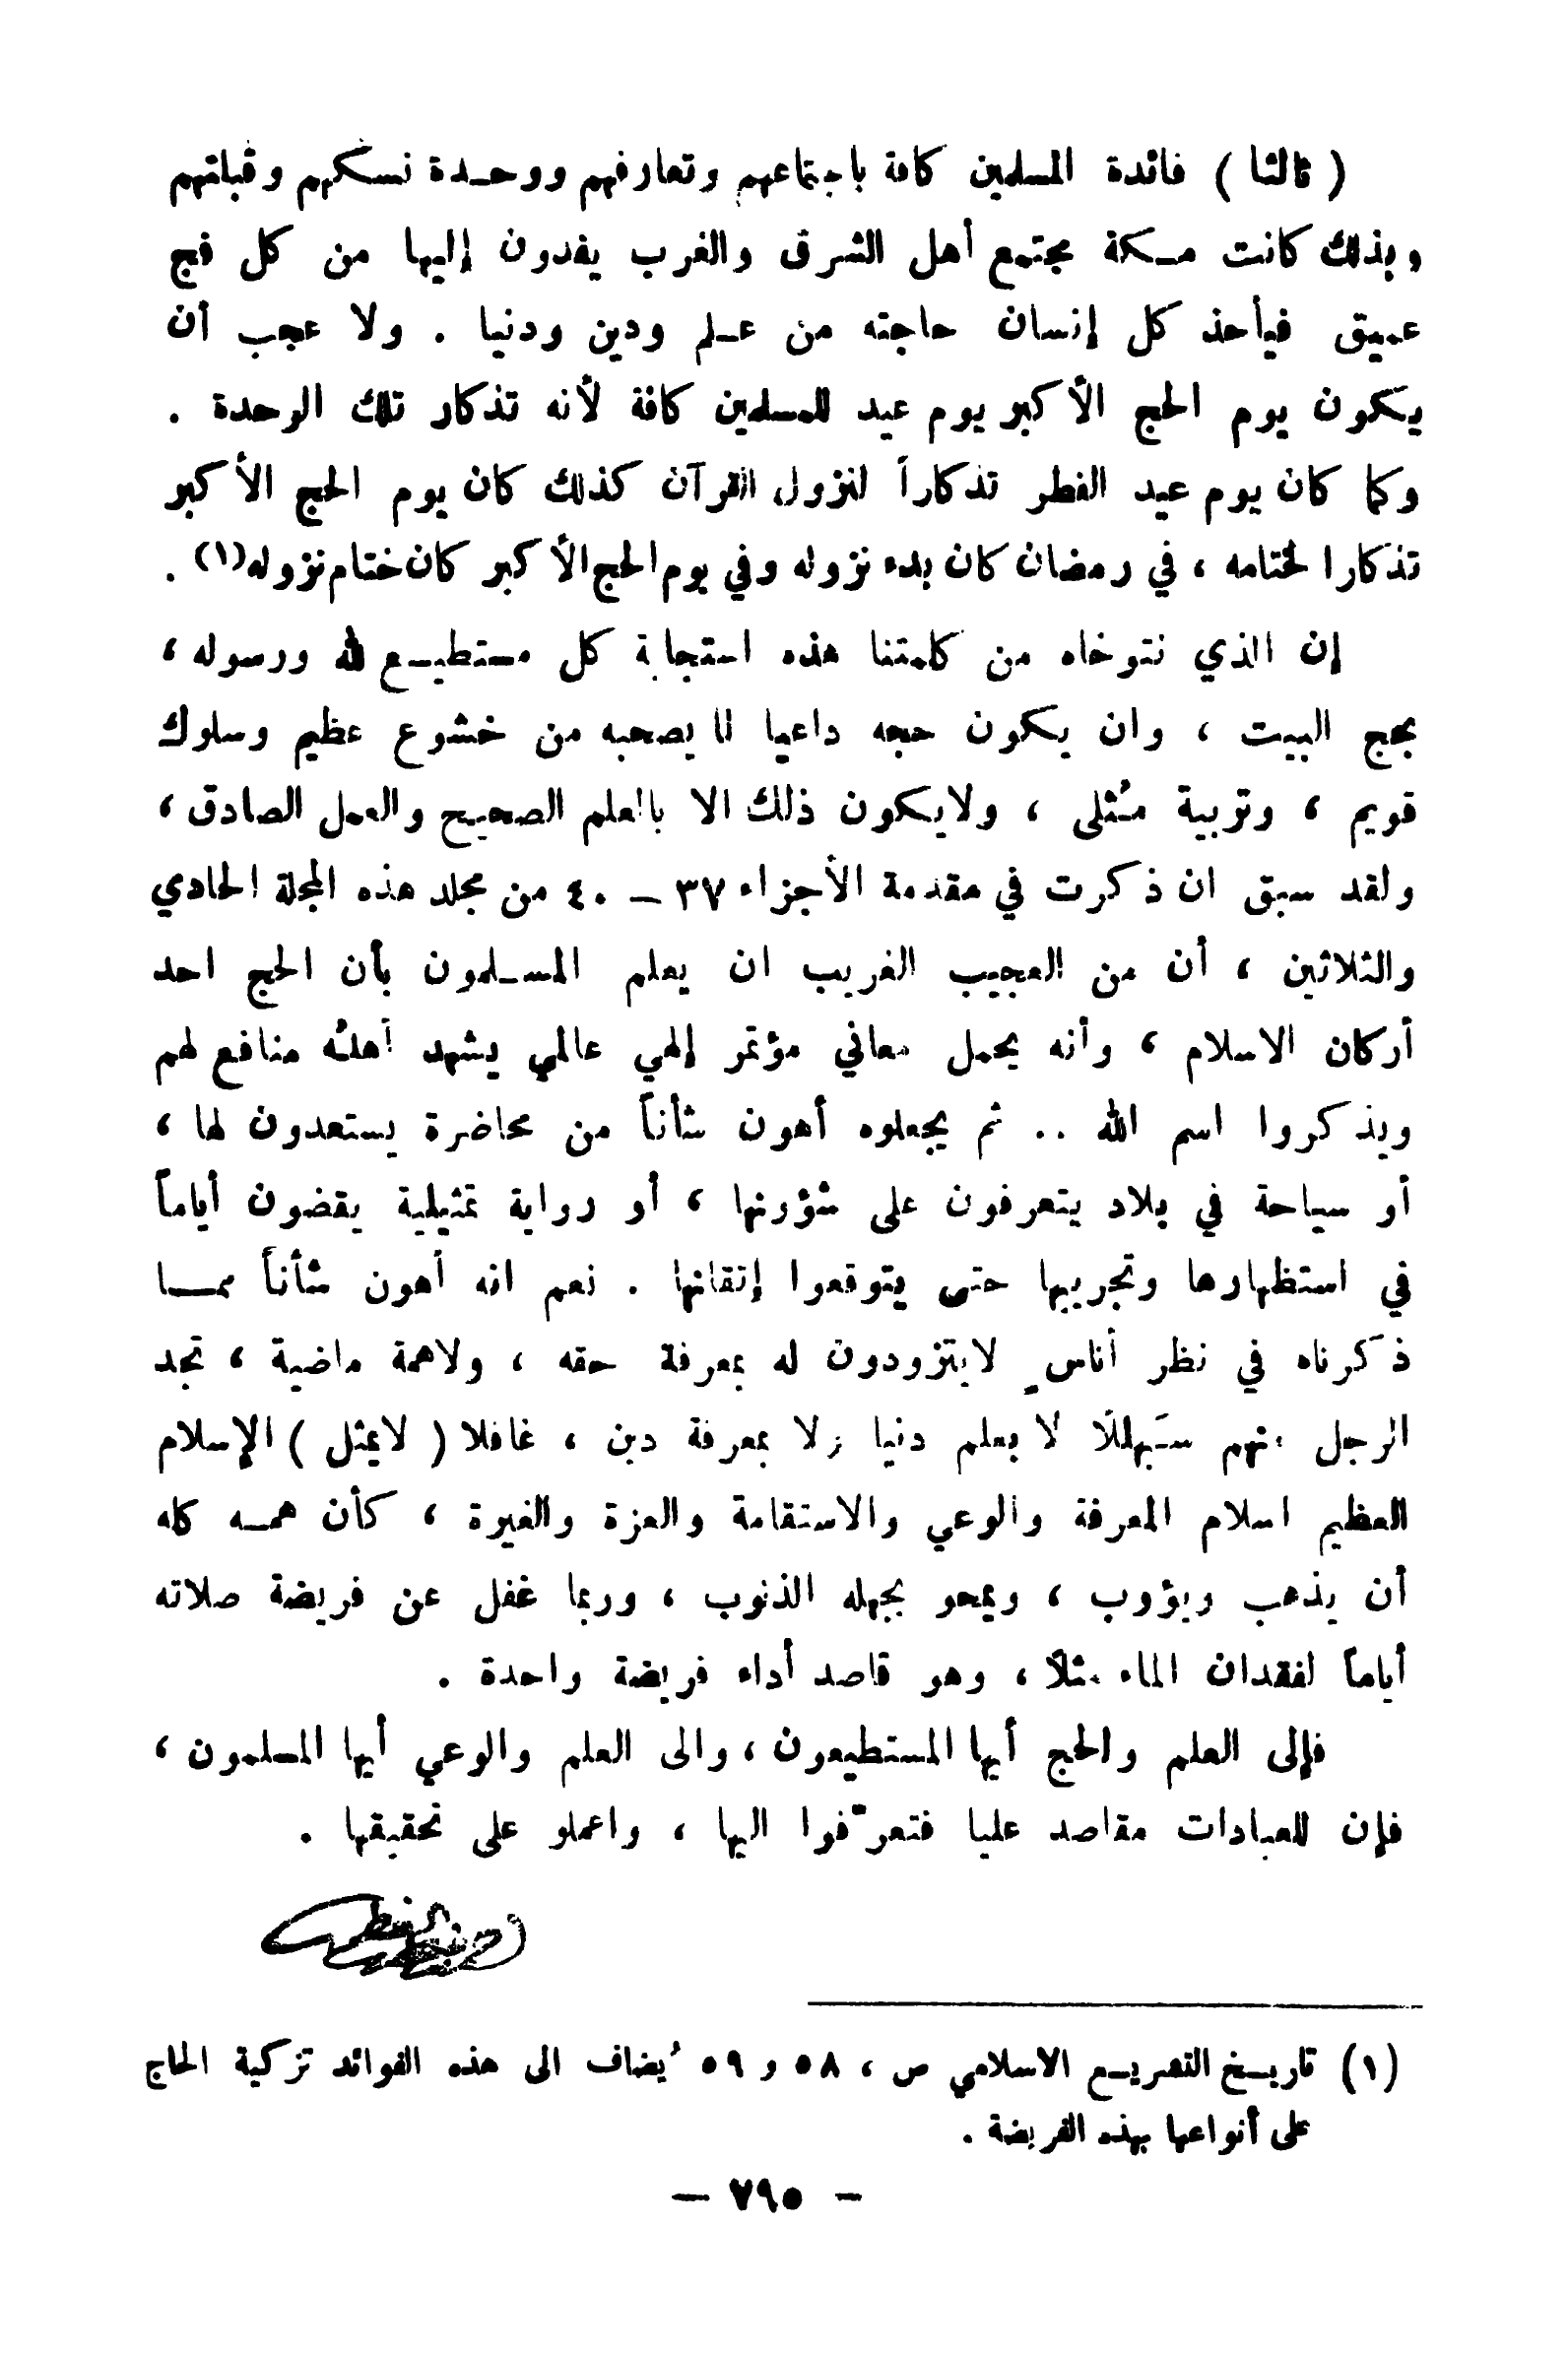 ( ثالثا ) فائدة المسلمين كافة باجتماعهم وتعارفهم ووحدة نسكهم وقبلتهم
وبذلك كانت مكة مجتمع أهل الشرق والغرب يفدون إليها من كل فج
عميق فيأخذ كل إنسان حاجته من علم ودين ودنيا . ولا عجب أن
يكون يوم الحج الأكبر يوم عيد للمسلمين كافة لأنه تذكار تلك الوحدة .
وكما كان يوم عيد الفطر تذكاراً لنزول القرآن كذلك كان يوم الحج الأكبر
تذكارا لختامه ، في رمضان كان بدء نزوله وفي يوم الحج الأكبر كان ختام نزوله(١) .
إن الذي نتوخاه من كلمتنا هذه استجابة كل مستطيع لله ورسوله ،
بحج البيت ، وان يكون حجه داعيا لما يصحبه من خشوع عظيم وسلوك
قويم ، وتربية مُثلى ، ولايكون ذلك الا بالعلم الصحيح والعمل الصادق ،
ولقد سبق ان ذكرت في مقدمة الأجزاء ٣٧ – ٤٠ من مجلد هذه المجلة الحادي
والثلاثين ، أن من العجيب الغريب ان يعلم المسلمون بأن الحج احد
أركان الاسلام ، وأنه يحمل معاني مؤتمر إلهي عالمي يشهد أهلُه منافع لهم
ويذكروا اسم الله .. ثم يجعلوه أهون شأناً من محاضرة يستعدون لها ،
أو سياحة في بلاد يتعرفون على شؤونها ، أو رواية تمثيلية يقضون أياماً
في استظهارها وتجريبها حتى يتوقعوا إتقانها . نعم انه أهون شأناً ممـــا
ذكرناه في نظر أناسٍ لايتزودون له بمعرفة حقه ، ولاهمة ماضية ، تجد
الرجل منهم سَبَهللًا لا بعلم دنيا ولا بمعرفة دين ، غافلا ( لايمثل ) الإسلام
العظيم اسلام المعرفة والوعي والاستقامة والعزة والغيرة ، كأن همــه كله
أن يذهب ويؤوب ، ويمحو بجهله الذنوب ، وربما غفل عن فريضة صلاته
أياماً لفقدان الماء مثلاً ، وهو قاصد أداء فريضة واحدة .
فإلى العلم والحج أيها المستطيعون ، والى العلم والوعي أيها المسلمون ،
فإن للعبادات مقاصد عليا فتعرّفوا اليها ، واعملو على تحقيقها .
(١) تاريخ التشريع الاسلامي ص ، ٥٨ و ٥٩ يُضاف الى هذه الفوائد تزكية الحاج
على أنواعها بهذه الفريضة .
– ٧٩٥ –